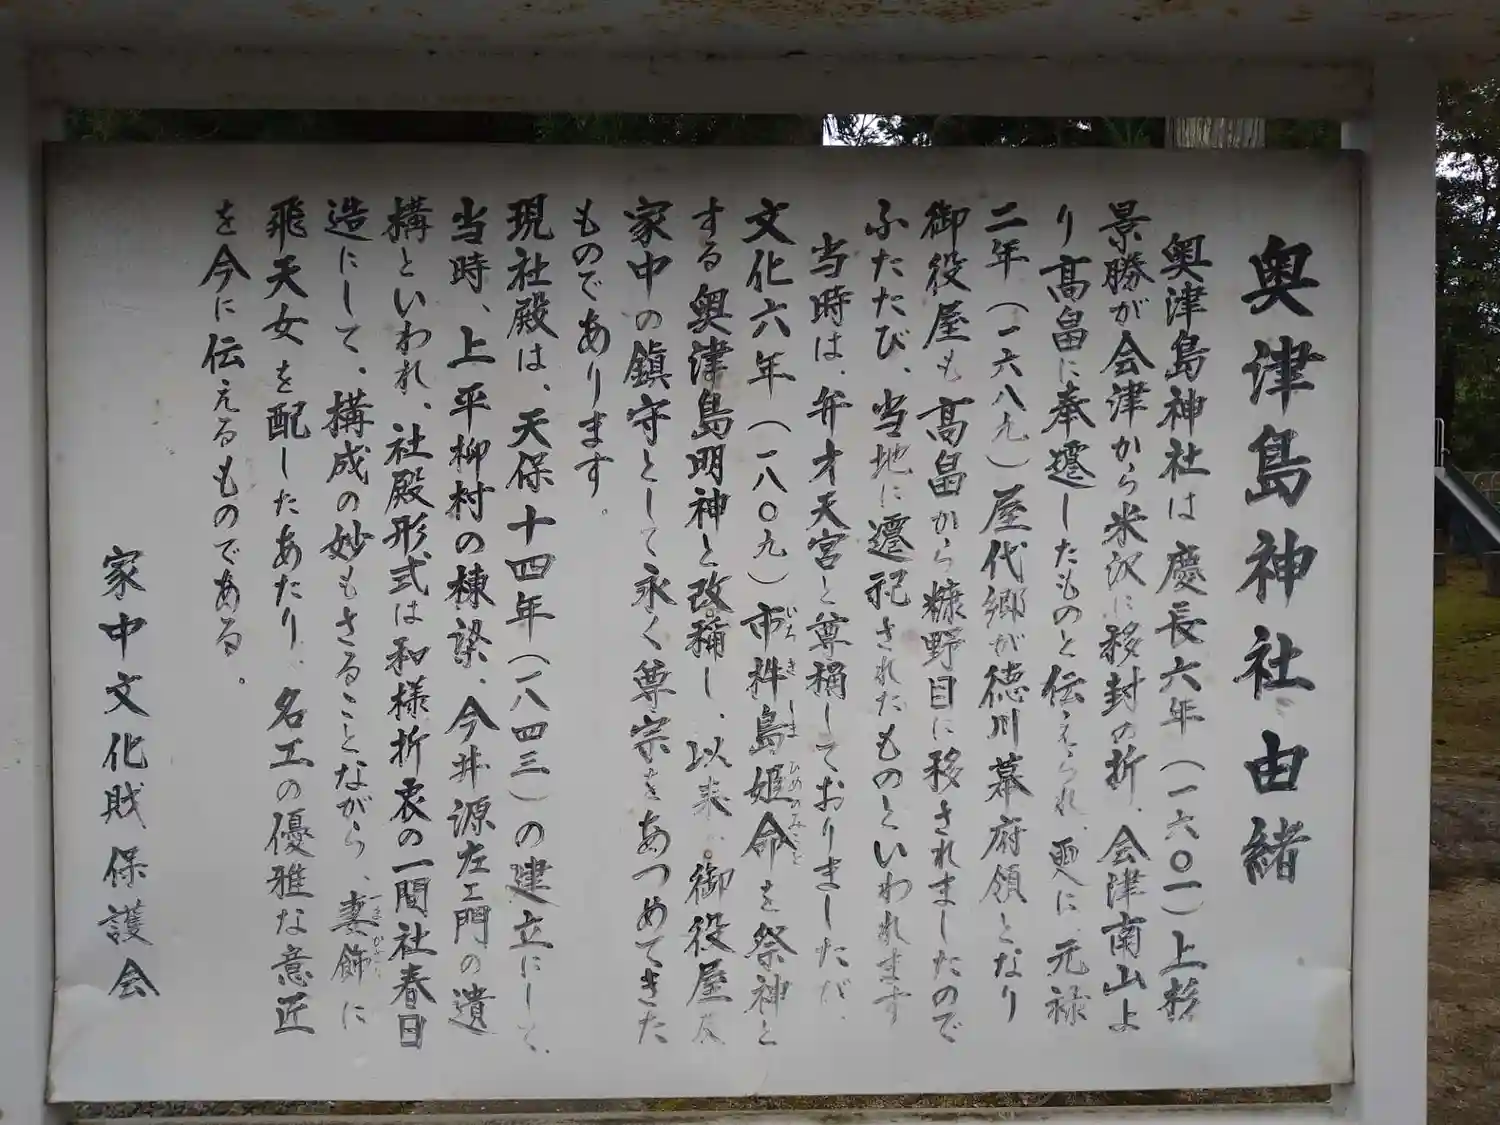 奥津島神社由緒
奥津島神社は慶長六年(一六〇一)上杉
景勝が会津から米沢に移封の折、会津南山よ
り高畠に奉遷したものと伝えられ、更に、元禄
二年(一六八九)屋代郷が徳川幕府領となり
御役屋も高畠から糠野目に移されましたので
ふたたび、当地に遷祀されたものといわれます
当時は、弁才天宮と尊称しておりましたが、
文化六年(一八〇九)市杵島姫命を祭神と
いちきしまひめのみこと
する奥津島明神と改称し、以来、御役屋及
家中の鎮守として永く尊宗をあつめてきた
ものであります。
現社殿は、天保十四年(一八四三)の建立にして、
当時、上平柳村の棟梁、今井源左エ門の遺
構といわれ、社殿形式は和様折衷の一間社春日
造にして、構成の妙もさることながら、妻飾に
つまかざり
飛天女を配したあたり、名工の優雅な意匠
を今に伝えるものである。
家中文化財保護会